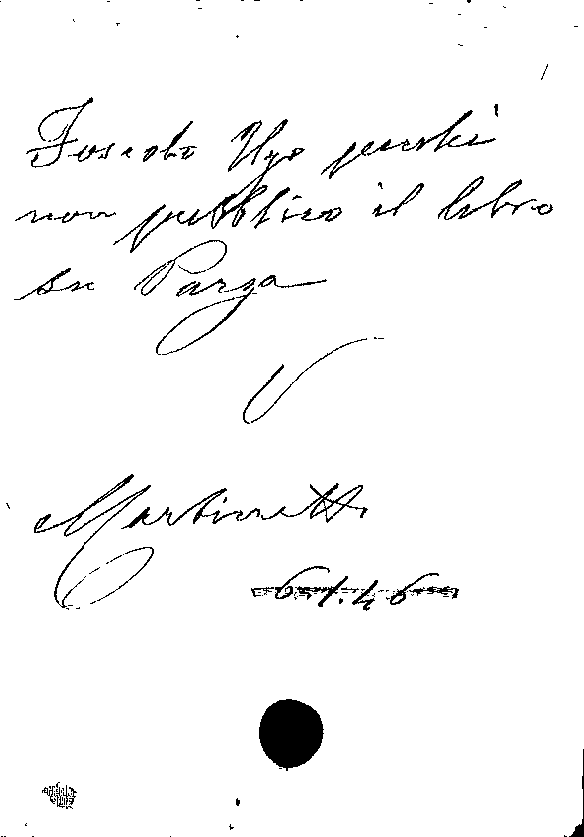 Foscolo Ugo perchè
non pubblicò il libro
su Parga
V
Martinetti
6.1.46